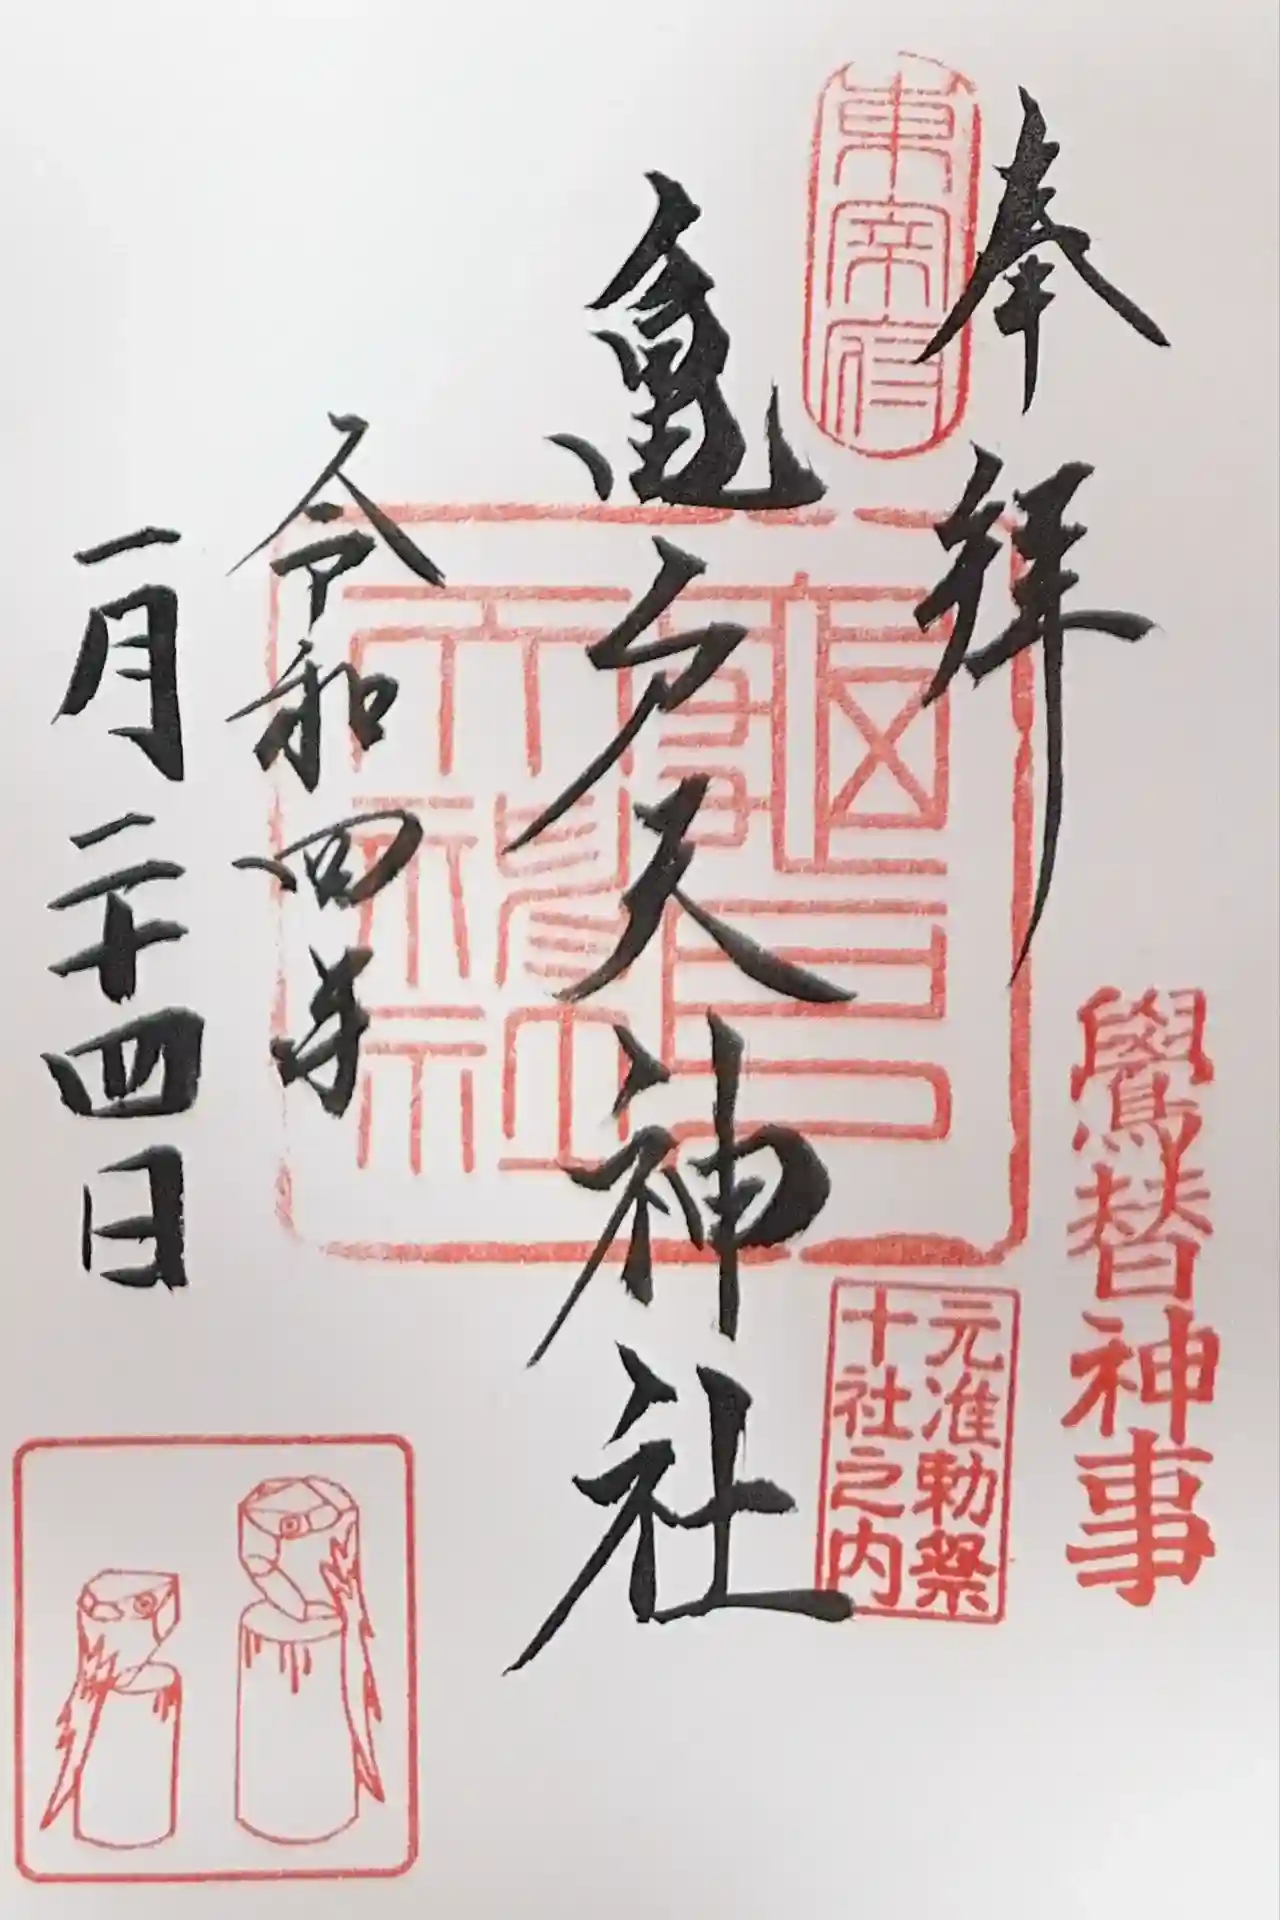 鷽替神事
奉拝
東宰府
元准勅祭
十社之内
亀戸天神社
令和四年
一月二十四日